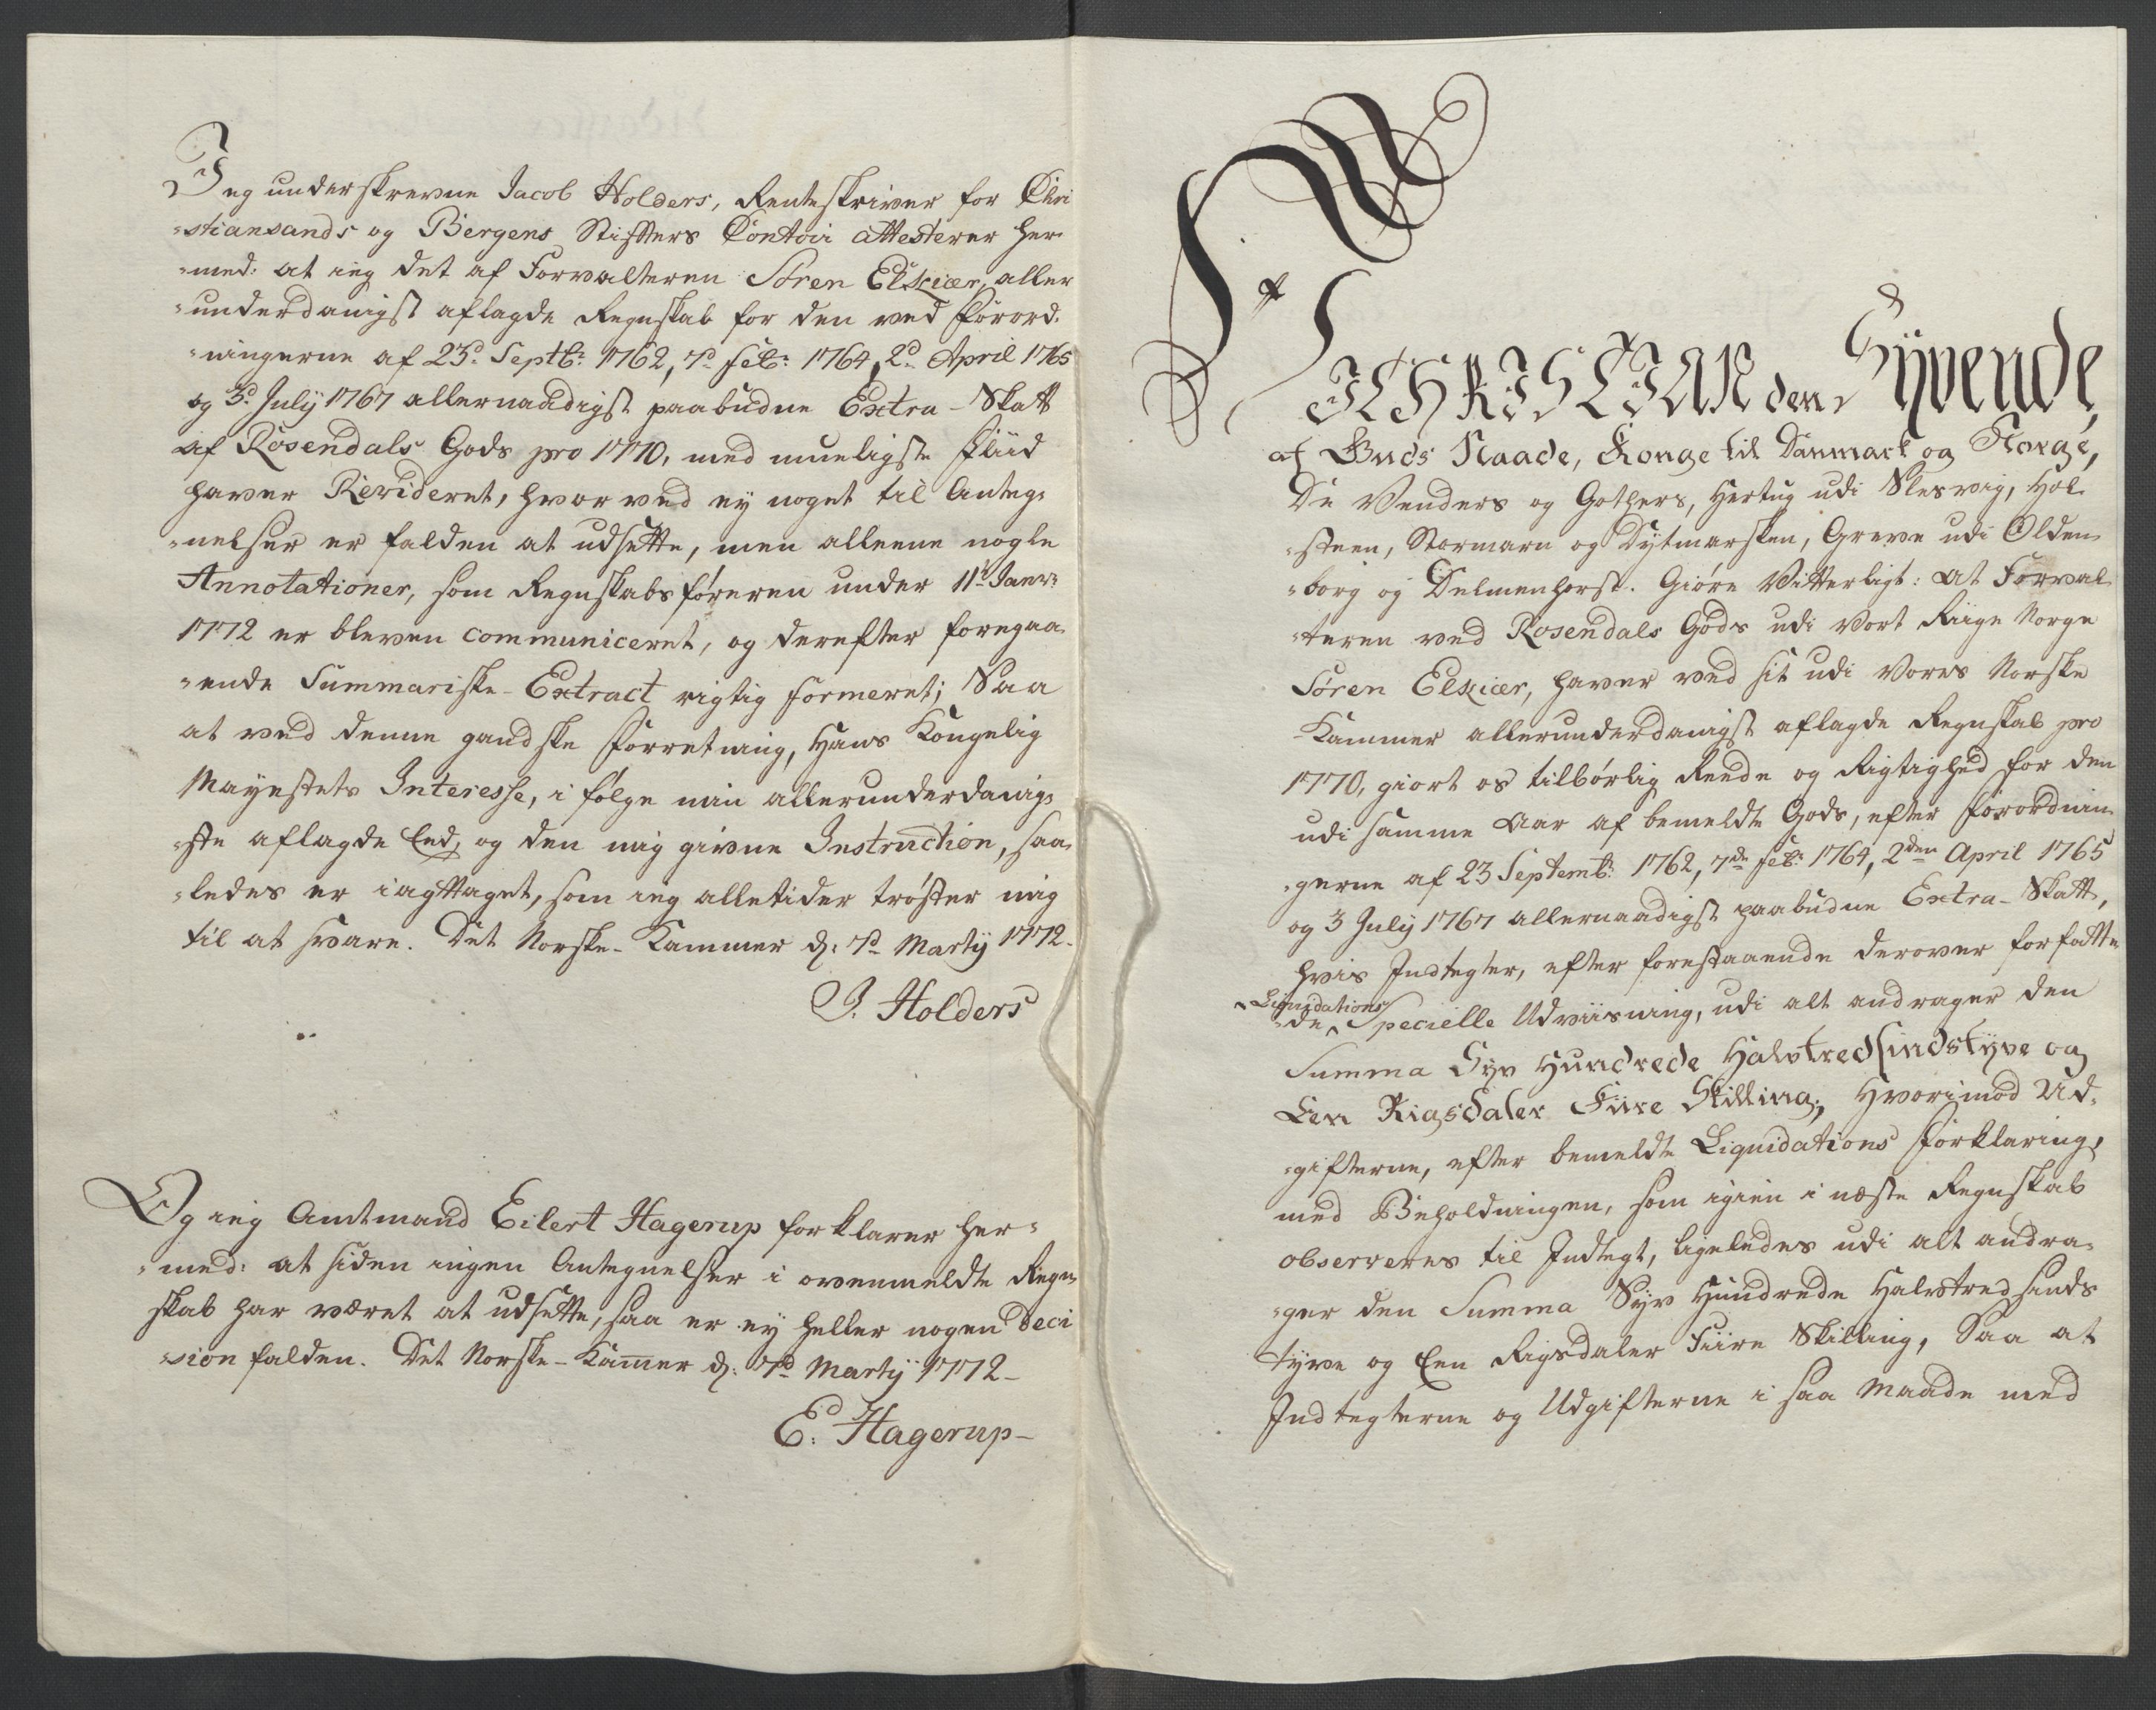 Jeg underskrevne Jacob Holders, Renteskriver for Chri
-stiansands og Bergens Stifters Contoir attesterer her
-med: at ieg det af Forvalteren Sören Elskiær, aller
-underdanigst aflagde Regnskab for den ved Forord-
-ningerne af 23d Septbr: 1762, 7d Feb: 1764, 2d April 1765
og 3d July 1767 allernaadigst paabudne Extra-Skatt
af Rosendals Gods pro 1770, med mueligste Fliid
haver Revideret, hvorved ey noget til Anteg-
-nelser er falden at udsette, men alleene nogle
Annotationer, som Regnskabsføreren under 11te Janr:
1772 er bleven communiceret, og derefter foregaa-
-ende Summariske-Extract rigtig formeret; Saa
at ved denne gandske Forretning, Hans Kongelig
Mayestets Interesse, i følge min allerunderdanig-
-ste aflagde Eed, og den mig givne Instruction, saa-
-ledes er iagttaget, som ieg alletider trøster mig
til at svare. Det Norske-Kammer d: 7d Marty 1772-
J. Holders
Og ieg Amtmand Eilert Hagerup forklarer her-
-med: at siden ingen Antegnelser i ovenmeldte Regn-
skab har været at udsette, saa er ey heller nogen Deci
-sion falden. Det Norske-Kammer d: 7d Marty 1772-
E: Hagerup-
Wi CHRISTIAN den Syvende,
af Guds Naade, Konge til Danmark og Norge,
De Venders og Gothers, Hertug udi Slesvig, Hol-
-steen, Stormarn og Dytmarsken, Greve udi Olden-
-borg og Delmenhorst. Giøre Vitterligt: At Forval-
-teren ved Rosendals Gods udi Vort Riige Norge
Søren Elskiær, haver ved sit udi Vores Norske
-Kammer allerunderdanigst aflagde Regnskab pro
1770, giort os tilbørlig Reede og Rigtighed for den
udi samme Aar af bemeldte Gods, efter Forordnin-
-gerne af 23 Septemb: 1762, 7de Feb: 1764, 2den April 1765
og 3 July 1767 allernaadigst paabudne Extra-Skatt,
hvis Indtegter, efter forestaaende derover forfatte-
Liquidations
-de Specielle Udviisning, udi alt andrager den
Summa Syv Hundrede Halvtredsindstyve og
Een Rigsdaler Fiire Skilling; Hvorimod Ud-
-gifterne, efter bemeldte Liquidations Forklaring,
med Beholdningen, som igien i næste Regnskab
observeres til Indtegt, ligeledes udi alt andra-
-ger den Summa Syv Hundrede Halvtredsinds
tyve og Een Rigsdaler Fiire Skilling, Saa at
Indtegterne og Udgifterne i saa Maade med